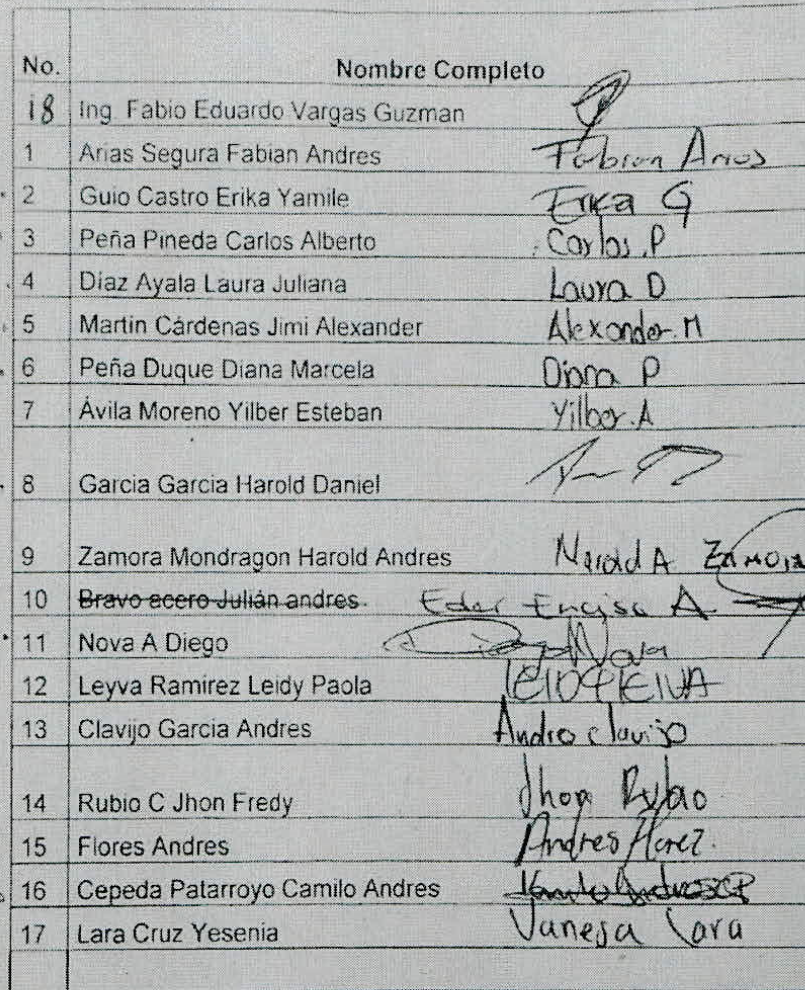 No. Nombre Completo
18 Ing. Fabio Eduardo Vargas Guzman
1 Arias Segura Fabian Andres Fabian Arias
2 Guio Castro Erika Yamile Erica G
3 Peña Pineda Carlos Alberto Carlos.P
4 Díaz Ayala Laura Juliana Laura D
5 Martin Cárdenas Jimi Alexander Alexander.M
6 Peña Duque Diana Marcela Diana P
7 Ávila Moreno Yilber Esteban Yilber.A
8 Garcia Garcia Harold Daniel
9 Zamora Mondragon Harold Andres Harold A Zamora
10 Bravo acero Julián andres. Eder Enciso A
11 Nova A Diego Diego Nova
12 Leyva Ramirez Leidy Paola
13 Clavijo Garcia Andres Andres clavijo
14 Rubio C Jhon Fredy Jhon Rubio
15 Flores Andres Andres Florez.
16 Cepeda Patarroyo Camilo Andres Camilo Andres CP
17 Lara Cruz Yesenia Vanesa Lara